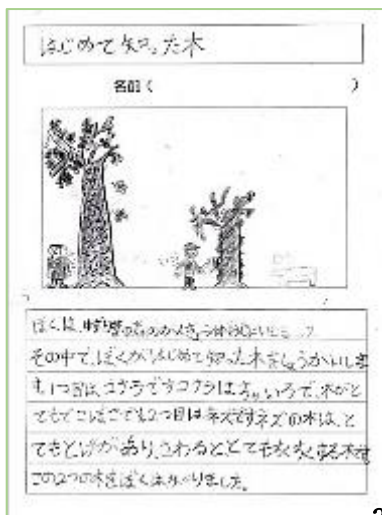 はじめて知った木
名前（ ）
ぼくは、
その中で、ぼくがはじめて知った木をしょうかいしま
す。1つ目は、コナラですコナラはちゃいろで、木がと
てもでこぼこです2つ目はネズですネズの木は、と
てもとげがあり、さわるととてもちくちくする木です
この2つの木をぼくは